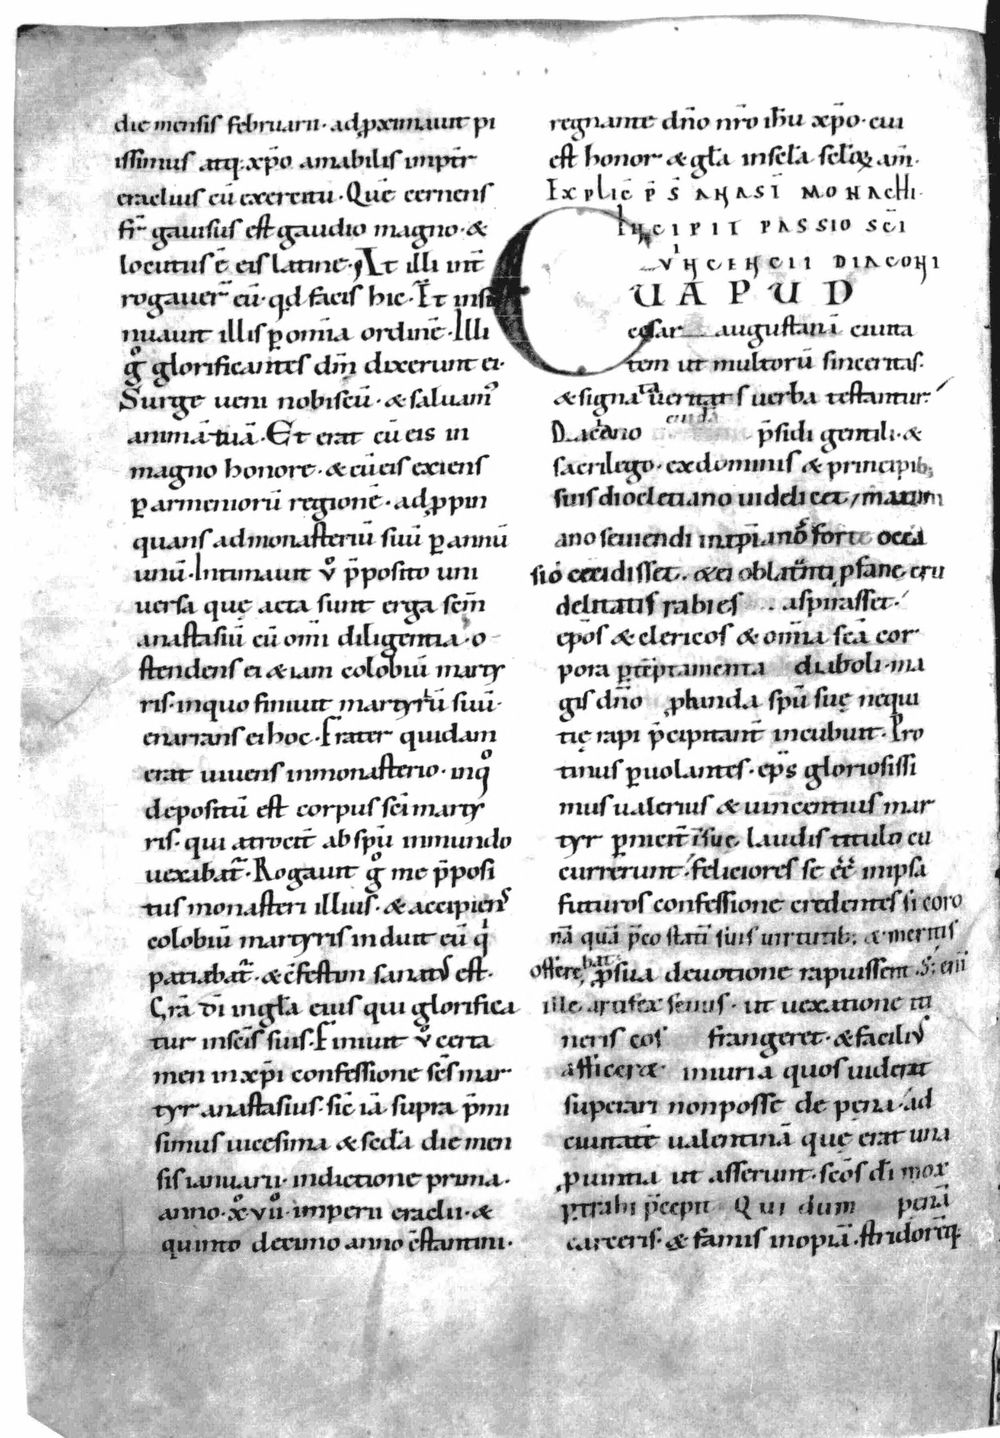 die mensis februarii · adꝓximauit pi
issimus atq; xp̄o amabilis imptr̄
eraclius cū exercitu · Quē cernens
fr̄ gauisus est gaudio magno · &
locutus ē eis latine · At illi init̄
rogauer̄ eū · qd facis hic · Et insi
nuauit illis ꝑ om̄ia ordinē · Illi
gͦ glorificantes dm̄ dixerunt ei ·
Surge ueni nobiscū · & saluamꝰ
animā tuā · Et erat cū eis in
magno honore · & cū eis exiens
ꝑ armeniorū regionē · adꝓpin
quans ad monasteriū suū ꝑ annū
unū · Intimauit vͦ p̄posito uni
uersa quę acta sunt erga sc̄m
anastasiū cū om̄i diligentia · o
stendens ei & iam colobiū marty
ris · in quo finiuit martyriū suū ·
enarrans ei hoc · Frater quidam
erat uiuens in monasterio · in qͦ
depositū est corpus sc̄i marty
ris · qui atrocit̄ ab spū inmundo
uexabat̄ · Rogauit gͦ me p̄posi
tus monasterii illius · & accipiens
colobiū martyris induit eū qͥ
patiabat̄ · & c̄festim sanatꝰ est ·
Grā dī in gl̄a eius qui glorifica
tur in sc̄is suis · Finiuit vͦ certa
men in xp̄i confessione sc̄s mar
tyr anastasius · sic̄ iā supra p̄mi
simus uicesima & sc̄dā die men
sis ianuarii · indictione prima ·
anno · xͦ·viiͦ· imperii eraclii · &
quinto decimo anno c̄stantini ·
regnante dn̄o nr̄o ih̄u xp̄o · cui
est honor & gl̄a in sc̄la sc̄loꝝ am̄ ·
Explic̄ p̄ s̄ anasī monachi ·
Incipit passio sc̄i
vincencii diaconi
CUAPUD
cesar augustanā ciuita
tem ut multorū sinceritas ·
& signata ueritatis uerba testantur ·
Daciano cuidā p̄sidi gentili · &
sacrilego · ex dominis & principib;
suis diocletiano uidelicet / maxim
ano seuiendi in xp̄ianos forte occa
sio cecidisset · & ei oblatū p̄fane cru
delitatis rabies aspirasset ·
epōs & clericos & om̄ia sc̄a cor
pora ꝑ tēptamenta diaboli · ma
gis dn̄o ꝓfunda spū suę nequi
tię rapi p̄cipitanī incubuit · Pro
tinus ꝑuolantes · ep̄s gloriosissi
mus ualerius & uincentius mar
tyr ꝑ merit̄ suę laudis titulo cu
currerunt · feliciores se ēē in ipsa
futuros confessione credentes si coro
nā quā p̄co statī suis uirtutib; & meritis
offerebat · ꝓpsua deuotione rapuissent · S; eni
ille artifex seuus · ut uexatione iti
neris eos frangeret · & faciliꝰ
afficeret iniuria quos uiderat
superari non posse de pena · ad
ciuitatē ualentinā quę erat una
ꝓuintia ut asserunt · sc̄ōs dī mox
ꝑtrahi p̄cepit Qui dum penā
carceris · & famis inopiā · stridorēq;